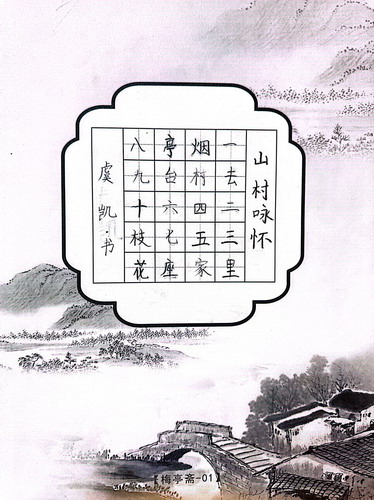 山村咏怀
一去二三里
烟村四五家
亭台六七座
八九十枝花
虞凯·书
【梅亭斋-01】